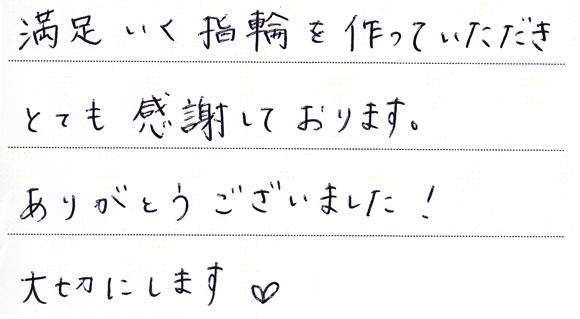 満足いく指輪を作っていただき
とても感謝しております。
ありがとうございました!
大切にします♡